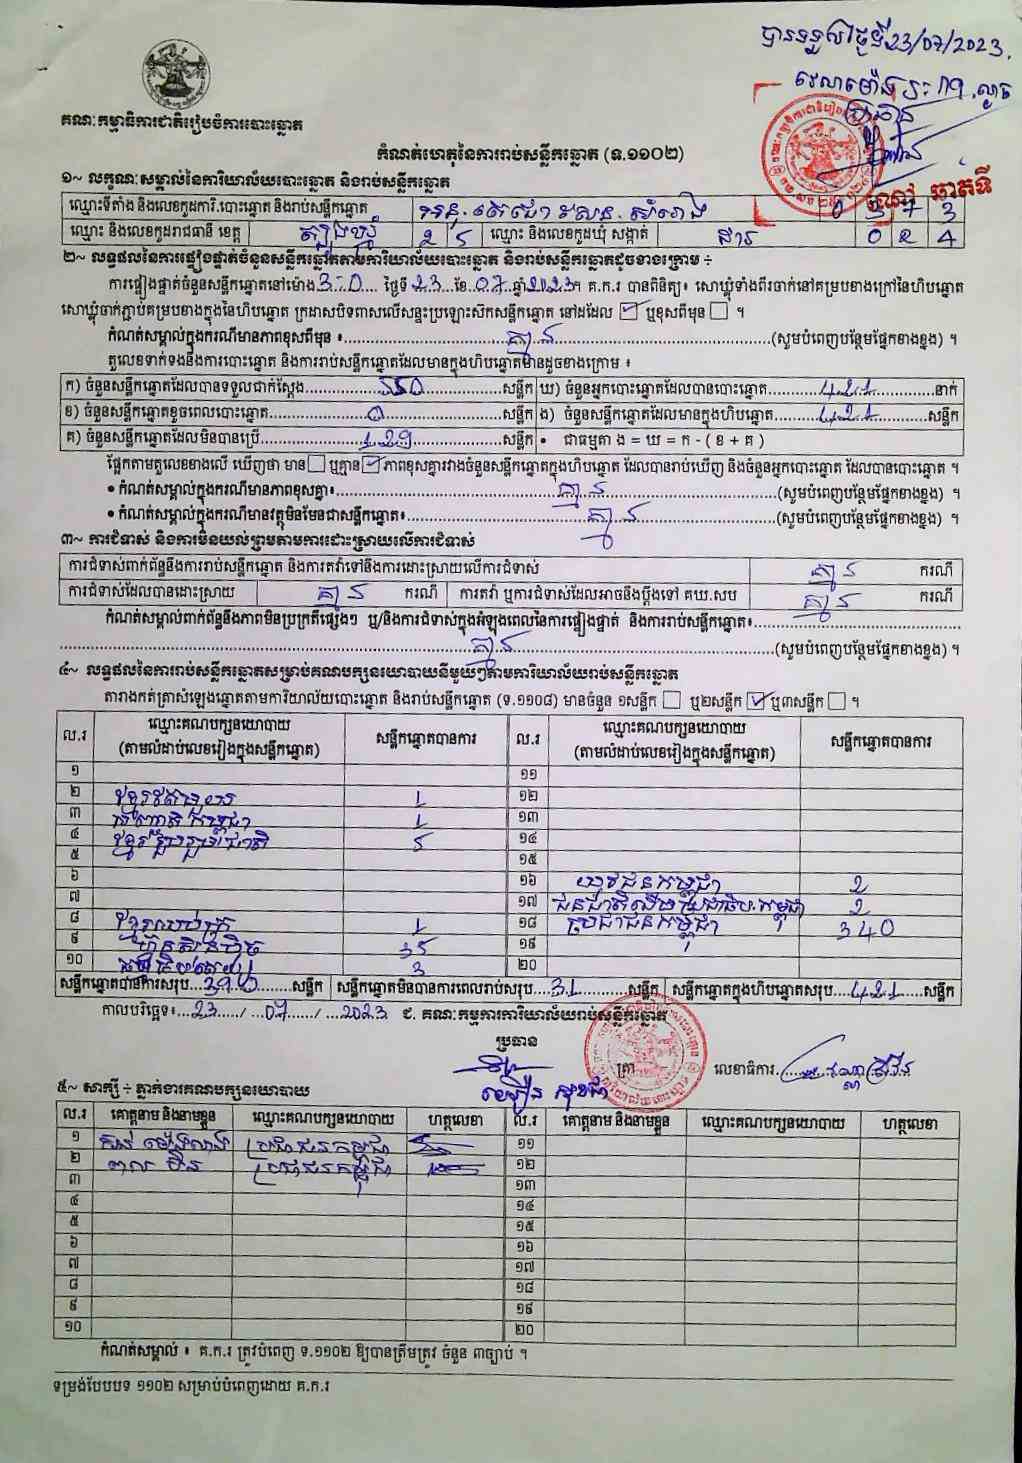 បានទទួលថ្ងៃទី 23/07/2023.
វេលាម៉ោង
ប្រធាន
គណៈកម្មាធិការជាតិរៀបចំការបោះឆ្នោត
កំណត់ហេតុនៃការរាប់សន្លឹកឆ្នោត (ទ.១១០២)
១~ លក្ខណៈសម្គាល់នៃការិយាល័យបោះឆ្នោត និងរាប់សន្លឹកឆ្នោត
ឈ្មោះទីតាំង និងលេខកូដការិ.បោះឆ្នោត និងរាប់សន្លឹកឆ្នោត 0 3 7 3
ឈ្មោះ និងលេខកូដរាជធានី ខេត្ត ត្បូងឃ្មុំ 2 5 ឈ្មោះ និងលេខកូដឃុំ សង្កាត់ 0 2 4
២~ លទ្ធផលនៃការផ្ទៀងផ្ទាត់ចំនួនសន្លឹកឆ្នោតតាមការិយាល័យបោះឆ្នោត និងរាប់សន្លឹកឆ្នោតដូចខាងក្រោម ÷
ការផ្ទៀងផ្ទាត់ចំនួនសន្លឹកឆ្នោតនៅម៉ោង 3:0 ថ្ងៃទី 23 ខែ 07 ឆ្នាំ 2023។ គ.ក.រ បានពិនិត្យ៖ សោឃ្លុំទាំងពីរចាក់នៅគម្របខាងក្រៅនៃហិបឆ្នោត
សោឃ្លុំចាក់ភ្ជាប់គម្របខាងក្នុងនៃហិបឆ្នោត ក្រដាសបិទពាសលើសន្ទះប្រឡោះស៊កសន្លឹកឆ្នោត នៅដដែល ☑ ឬខុសពីមុន ☐ ។
កំណត់សម្គាល់ក្នុងករណីមានភាពខុសពីមុន ៖ គ្មាន (សូមបំពេញបន្ថែមផ្នែកខាងខ្នង) ។
តួលេខទាក់ទងនឹងការបោះឆ្នោត និងការរាប់សន្លឹកឆ្នោតដែលមានក្នុងហិបឆ្នោតមានដូចខាងក្រោម ៖
ក) ចំនួនសន្លឹកឆ្នោតដែលបានទទួលជាក់ស្តែង 550 សន្លឹក ឃ) ចំនួនអ្នកបោះឆ្នោតដែលបានបោះឆ្នោត 421 នាក់
ខ) ចំនួនសន្លឹកឆ្នោតខូចពេលបោះឆ្នោត 0 សន្លឹក ង) ចំនួនសន្លឹកឆ្នោតដែលមានក្នុងហិបឆ្នោត 421 សន្លឹក
គ) ចំនួនសន្លឹកឆ្នោតដែលមិនបានប្រើ 129 សន្លឹក • ជាធម្មតា ង = ឃ = ក - ( ខ + គ )
ផ្អែកតាមតួលេខខាងលើ ឃើញថា មាន ☐ ឬគ្មាន ☑ ភាពខុសគ្នារវាងចំនួនសន្លឹកឆ្នោតក្នុងហិបឆ្នោត ដែលបានរាប់ឃើញ និងចំនួនអ្នកបោះឆ្នោត ដែលបានបោះឆ្នោត ។
• កំណត់សម្គាល់ក្នុងករណីមានភាពខុសគ្នា៖ គ្មាន (សូមបំពេញបន្ថែមផ្នែកខាងខ្នង) ។
• កំណត់សម្គាល់ក្នុងករណីមានវត្ថុមិនមែនជាសន្លឹកឆ្នោត៖ គ្មាន (សូមបំពេញបន្ថែមផ្នែកខាងខ្នង) ។
៣~ ការជំទាស់ និងការមិនយល់ព្រមតាមការដោះស្រាយលើការជំទាស់
ការជំទាស់ពាក់ព័ន្ធនឹងការរាប់សន្លឹកឆ្នោត និងការតវ៉ាទៅនឹងការដោះស្រាយលើការជំទាស់ គ្មាន ករណី
ការជំទាស់ដែលបានដោះស្រាយ គ្មាន ករណី ការតវ៉ា ឬការជំទាស់ដែលអាចនឹងប្តឹងទៅ គឃ.សប គ្មាន ករណី
កំណត់សម្គាល់ពាក់ព័ន្ធនឹងភាពមិនប្រក្រតីផ្សេងៗ ឬ/និងការជំទាស់ក្នុងអំឡុងពេលនៃការផ្ទៀងផ្ទាត់ និងការរាប់សន្លឹកឆ្នោត៖
គ្មាន (សូមបំពេញបន្ថែមផ្នែកខាងខ្នង) ។
៤~ លទ្ធផលនៃការរាប់សន្លឹកឆ្នោតសម្រាប់គណបក្សនយោបាយនីមួយៗតាមការិយាល័យរាប់សន្លឹកឆ្នោត
តារាងកត់ត្រាសំឡេងឆ្នោតតាមការិយាល័យបោះឆ្នោត និងរាប់សន្លឹកឆ្នោត (ទ.១១០៨) មានចំនួន ១សន្លឹក ☐ ឬ២សន្លឹក ☑ ឬ៣សន្លឹក ☐ ។
ល.រ ឈ្មោះគណបក្សនយោបាយ (តាមលំដាប់លេខរៀងក្នុងសន្លឹកឆ្នោត) សន្លឹកឆ្នោតបានការ ល.រ ឈ្មោះគណបក្សនយោបាយ (តាមលំដាប់លេខរៀងក្នុងសន្លឹកឆ្នោត) សន្លឹកឆ្នោតបានការ
១ ១១
២ 1 ១២
៣ 1 ១៣
៤ ខ្មែររួបរួមជាតិ 5 ១៤
៥ ១៥
៦ ១៦ យុវជនកម្ពុជា 2
៧ ១៧ ជនជាតិដើមប្រជាធិប.កម្ពុជា 2
៨ 1 ១៨ ប្រជាជនកម្ពុជា 340
៩ ហ៊្វុនស៊ិនប៉ិច 35 ១៩
១០ 3 ២០
សន្លឹកឆ្នោតបានការសរុប 390 សន្លឹក សន្លឹកឆ្នោតមិនបានការពេលរាប់សរុប 31 សន្លឹក សន្លឹកឆ្នោតក្នុងហិបឆ្នោតសរុប 421 សន្លឹក
កាលបរិច្ឆេទ៖ 23 / 07 / 2023 ជ. គណៈកម្មការការិយាល័យរាប់សន្លឹកឆ្នោត
ប្រធាន
ត្រា លេខាធិការ
៥~ សាក្សី ÷ ភ្នាក់ងារគណបក្សនយោបាយ
ល.រ គោត្តនាម និងនាមខ្លួន ឈ្មោះគណបក្សនយោបាយ ហត្ថលេខា ល.រ គោត្តនាម និងនាមខ្លួន ឈ្មោះគណបក្សនយោបាយ ហត្ថលេខា
១ ប្រជាជនកម្ពុជា ១១
២ ប្រជាជនកម្ពុជា ១២
៣ ១៣
៤ ១៤
៥ ១៥
៦ ១៦
៧ ១៧
៨ ១៨
៩ ១៩
១០ ២០
កំណត់សម្គាល់ ៖ គ.ក.រ ត្រូវបំពេញ ទ.១១០២ ឱ្យបានត្រឹមត្រូវ ចំនួន ៣ច្បាប់ ។
ទម្រង់បែបបទ ១១០២ សម្រាប់បំពេញដោយ គ.ក.រ